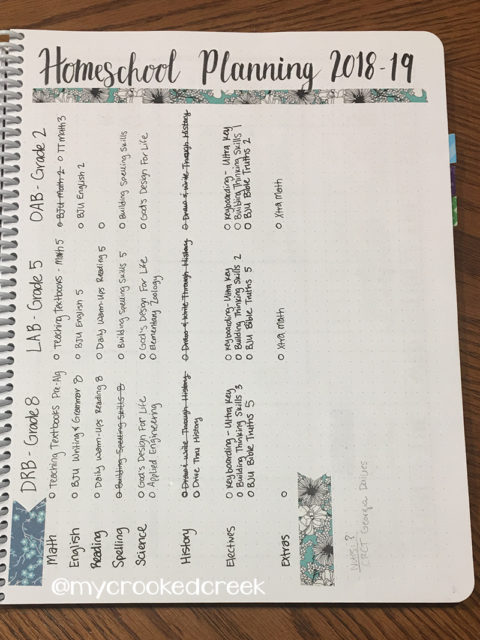 Homeschool Planning 2018-19
DRB - Grade 8
LAB - Grade 5
OAB - Grade 2
Math
Teaching Textbooks Pre-Alg
Teaching Textbooks - Math 5
BJU Math 2 o TT Math 3
English
BJU Writing & Grammar 8
BJU English 5
BJU English 2
Reading
Daily Warm-Ups Reading 8
Daily Warm-Ups Reading 5
Spelling
Building Spelling Skills 8
Building Spelling Skills 5
Building Spelling Skills
Science
God's Design For Life
Applied Engineering
God's Design For Life
Elementary Zoology
God's Design For Life
History
Draw & Write Through History
Drive Thru History
Draw & Write Through History
Draw & Write Through History
Electives
Keyboarding - Ultra Key
Building Thinking Skills 3
BJU Bible Truths 5
Keyboarding - Ultra Key
Building Thinking Skills 2
BJU Bible Truths 5
Keyboarding - Ultra Key
Building Thinking Skills 1
BJU Bible Truths 2
Extras
Xtra Math
Xtra Math
Georgia
@mycrookedcreek